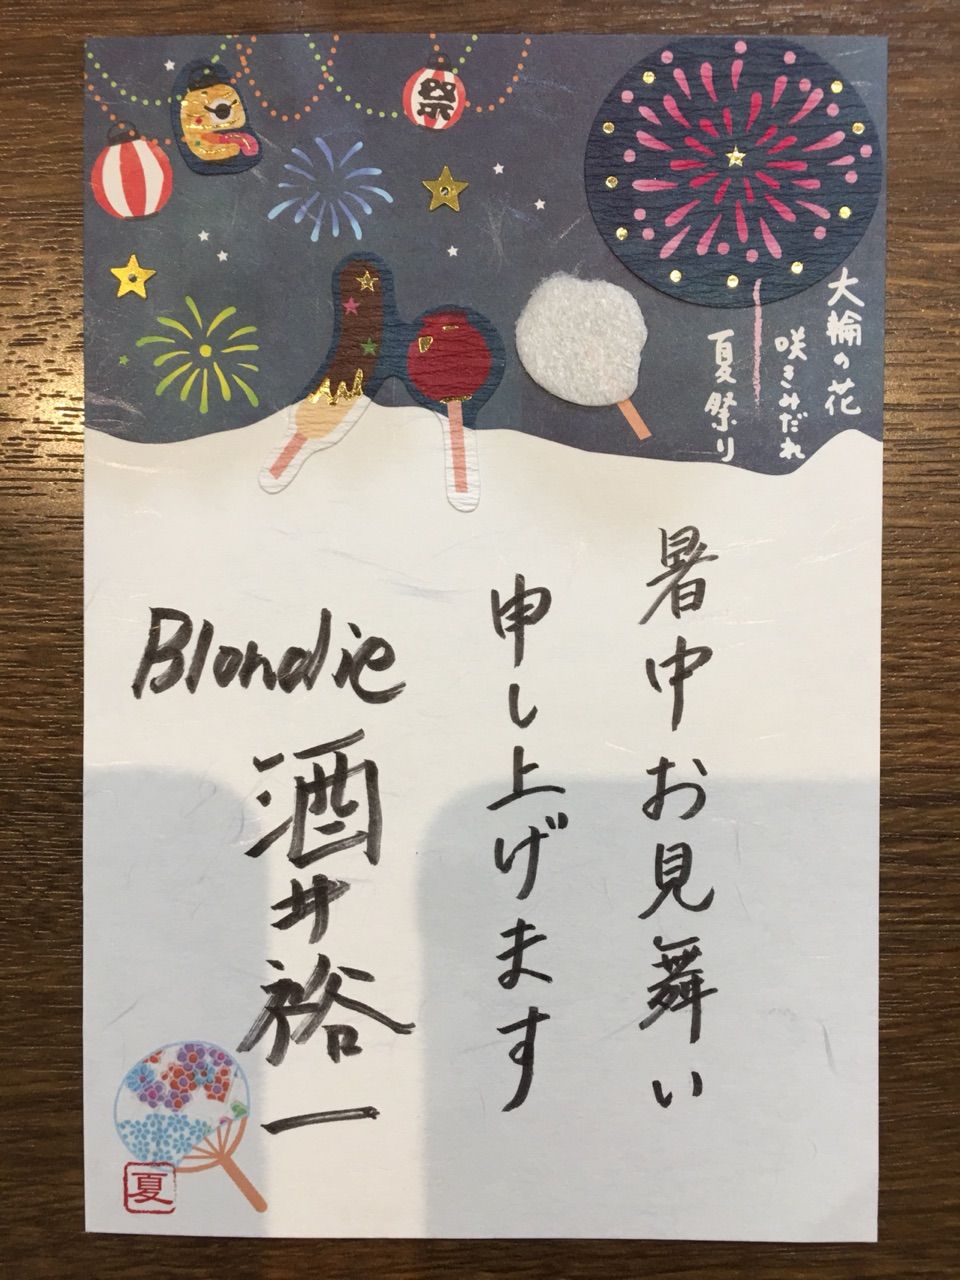 祭
大輪の花
咲きみだれ
夏祭り
暑中お見舞い
申し上げます
Blondie
酒井裕一
夏